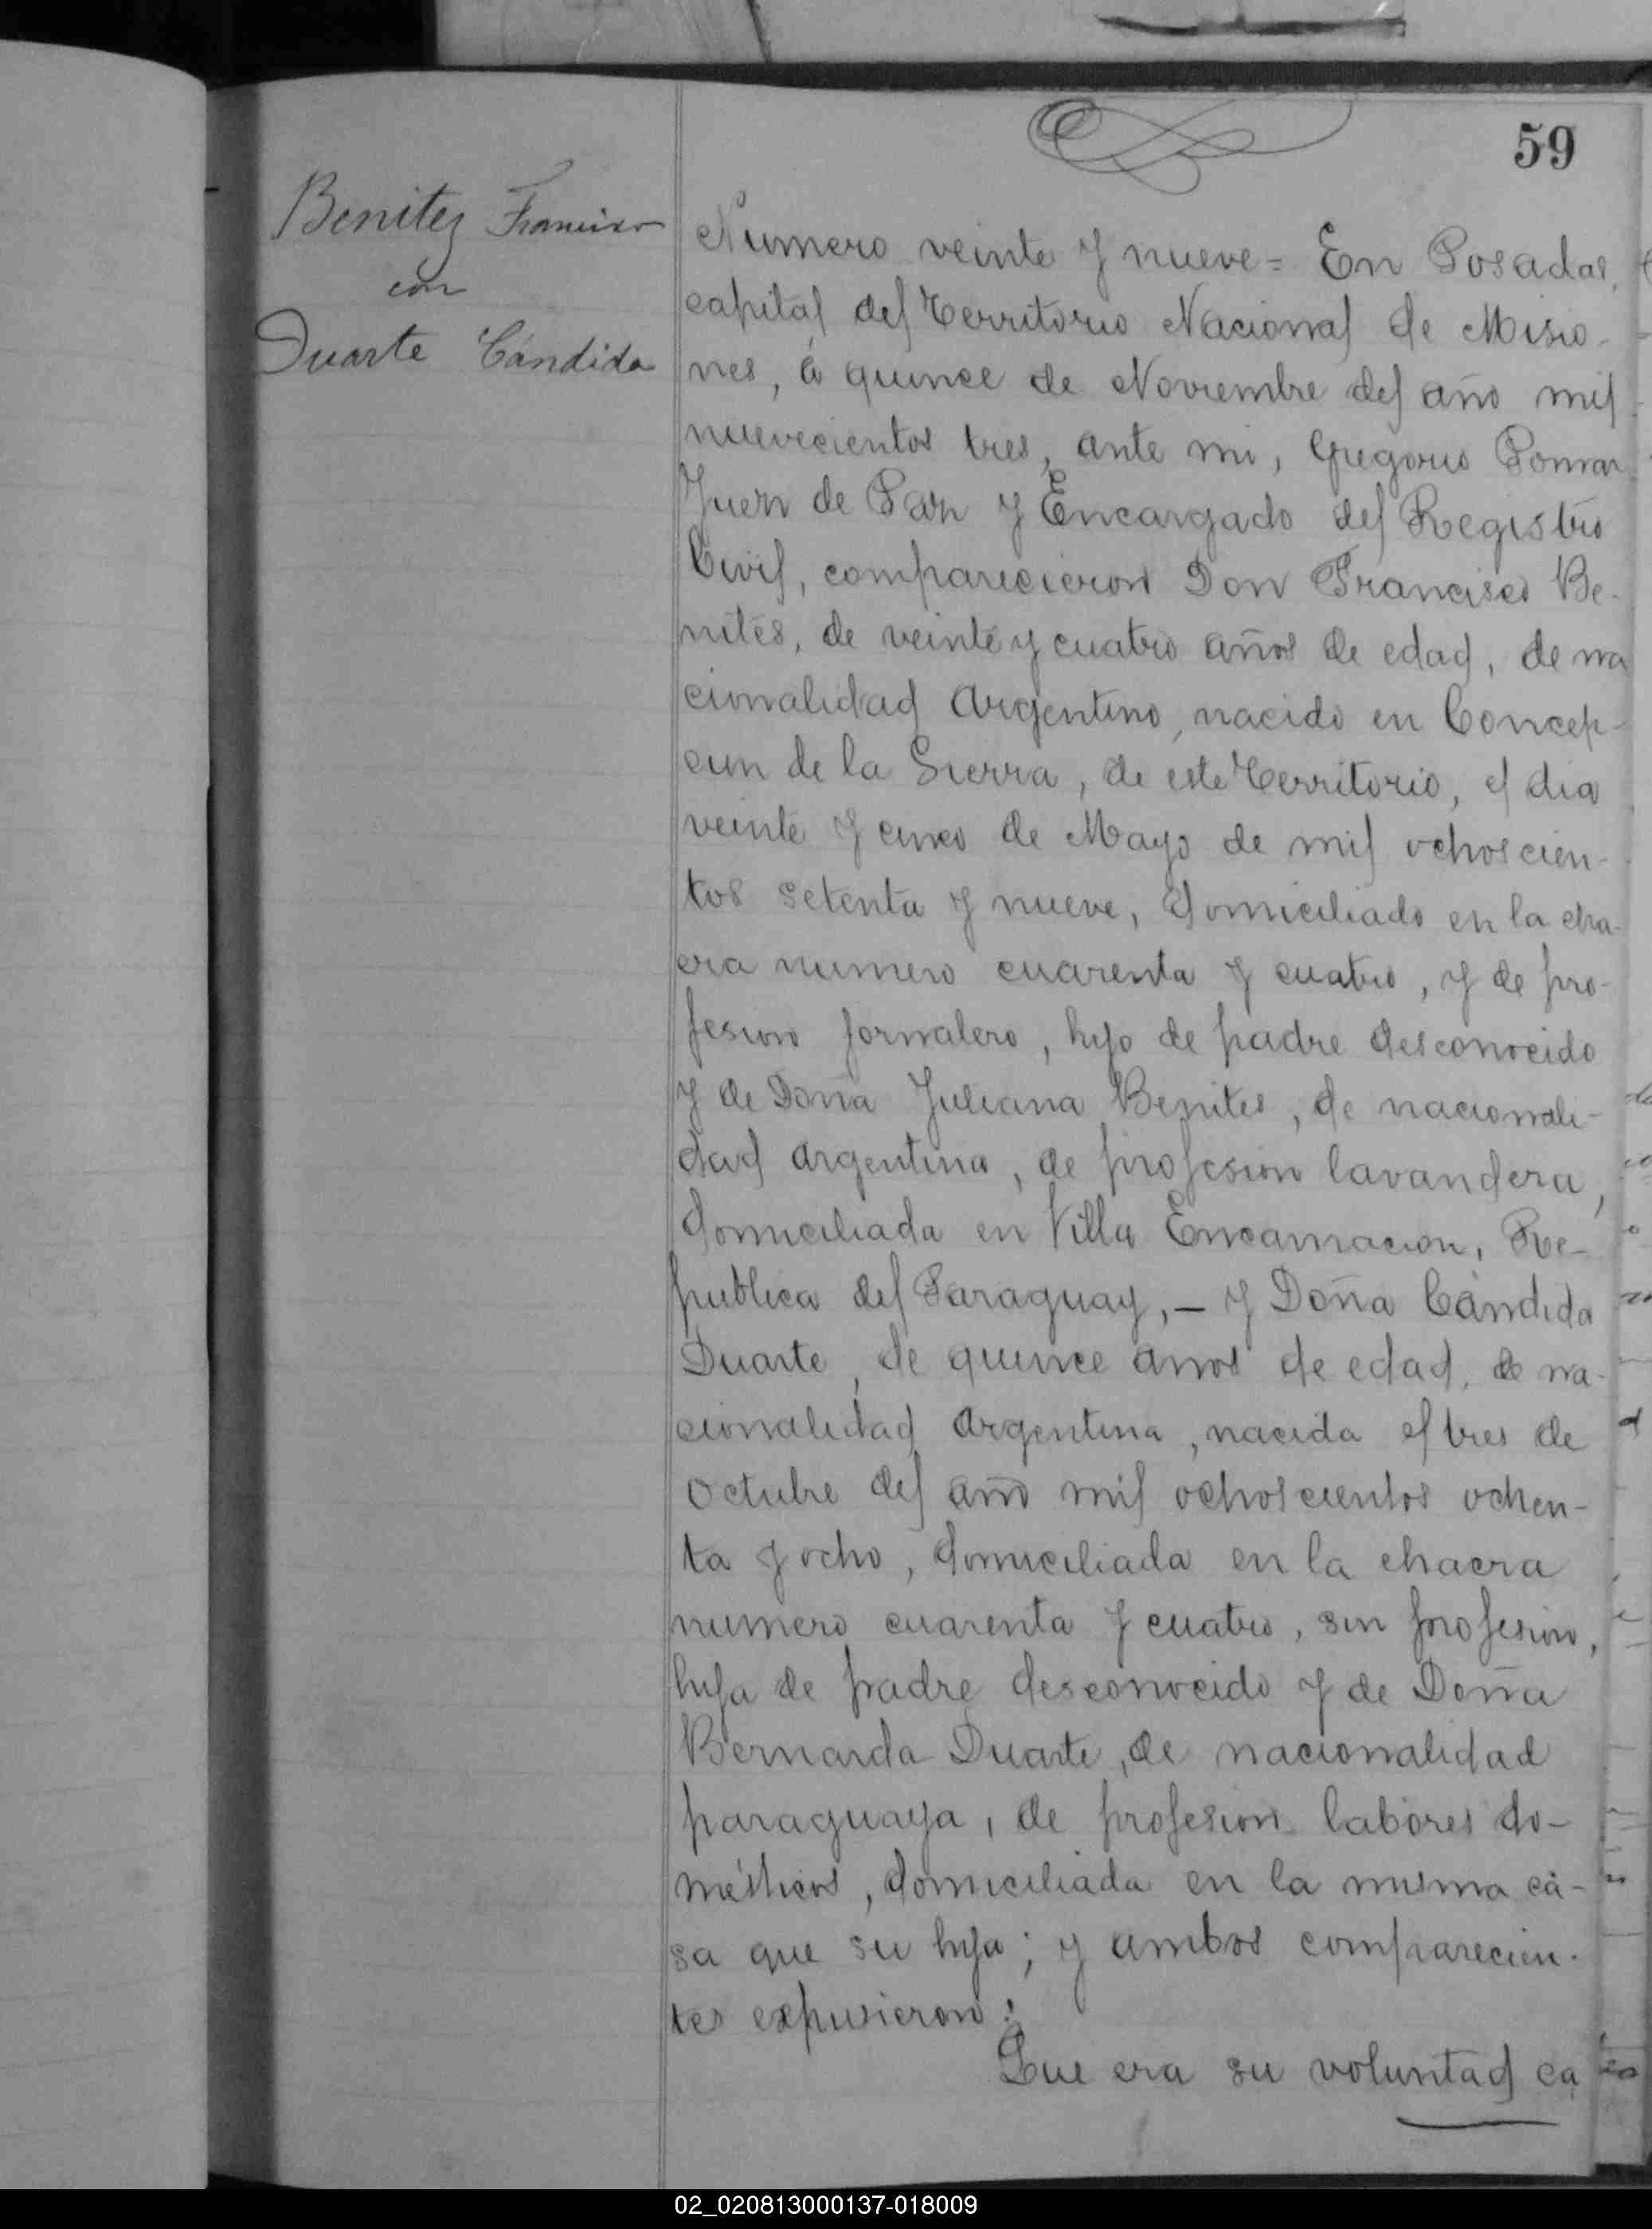 59
Benitez Francisco
con
Duarte Cándida
Numero veinte y nueve = En Posadas,
capital del Territorio Nacional de Misio-
nes, á quince de Noviembre del año mil
nuevecientos tres, ante mi, Gregorio Pomar
Juez de Paz y Encargado del Registro
Civil, comparecieron Don Francisco Be-
nites, de veinte y cuatro años de edad, de na
cionalidad argentino, nacido en Concep-
cion de la Sierra, de este Territorio, el dia
veinte y cinco de Mayo de mil ochoscien-
tos setenta y nueve, domiciliado en la cha-
cra numero cuarenta y cuatro, y de pro-
fesion jornalero, hijo de padre desconocido
y de Doña Juliana Benites, de nacionali-
dad argentina, de profesion lavandera,
domiciliada en Villa Encarnacion, Re-
publica del Paraguay, — y Doña Cándida
Duarte, de quince años de edad, de na-
cionalidad argentina, nacida el tres de
Octubre del año mil ochoscientos ochen-
ta y ocho, domiciliada en la chacra
numero cuarenta y cuatro, sin profesion,
hija de padre desconocido y de Doña
Bernarda Duarte, de nacionalidad
paraguaya, de profesion labores do-
mésticos, domiciliada en la misma ca-
sa que su hija; y ambos comparecien-
tes expusieron:
Que era su voluntad ca
02_020813000137-018009